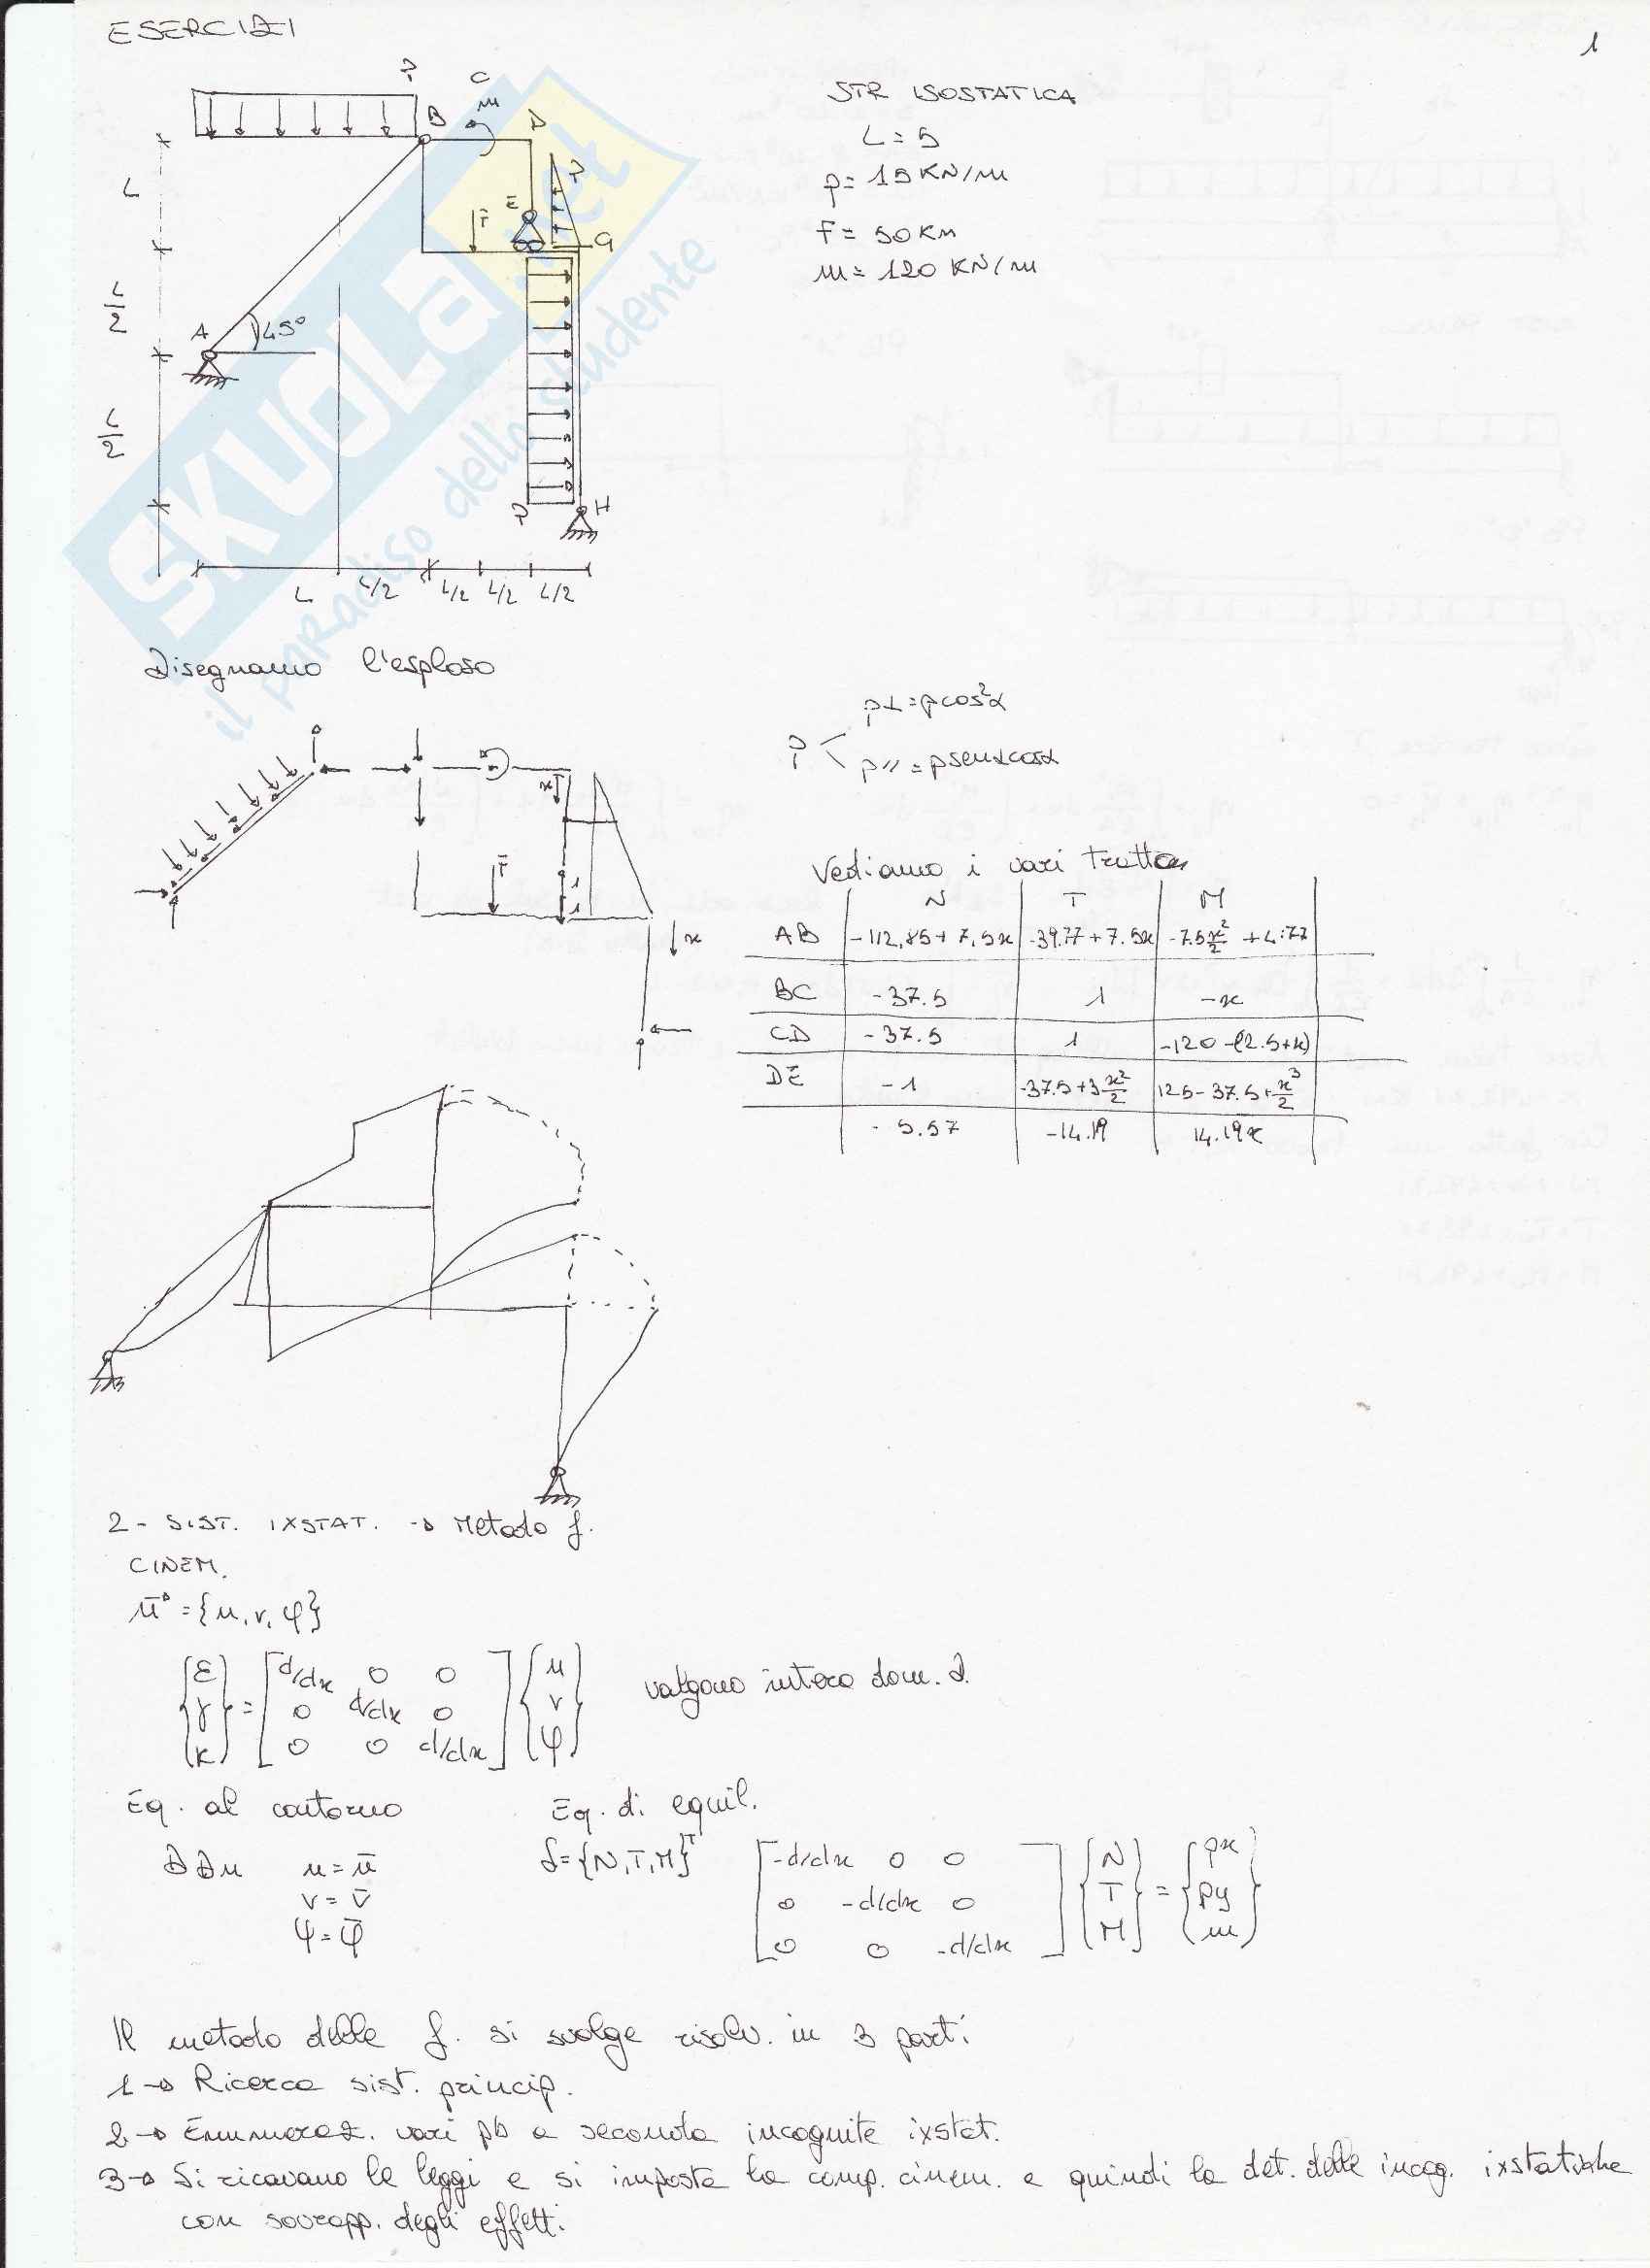 ESERCIZI
1
P
C
m
B
D
STR ISOSTATICA
L=5
p=15KN/m
F=50KN
m=120 KN/m
L
P
E
F
G
L/2
A
45°
L/2
P
H
L
L/2
L/2
L/2
L/2
SKUOLA.net
il paradiso dello studente
Disegnamo l'esploso
P
p⊥=pcos²α
p// =psenαcosα
x
F
1
1
x
Vediamo i vari tratti
N
T
M
AB
-112,85+7,5x
-39.77+7.5x
BC
-37.5
1
-x
CD
-37.5
1
-120-(2.5+x)
DE
-1
-37.5+3x²/2
125-37.5+x³/2
-5.57
-14.19
14.19x
2- SIST. IXSTAT. → Metodo f.
CINEM.
={u,v,φ}
{ε γ κ} = [d/dx 0 0; 0 d/dx 0; 0 0 d/dx] {u v φ}
valgono intero dom. D.
Eq. al contorno
Eq. di equil.
u=ū
v=v̄
φ=φ̄
f={N,T,M}ᵀ
[-d/dx 0 0; 0 -d/dx 0; 0 0 -d/dx] {N T M} = {px py m}
Il metodo delle f. si svolge risolv. in 3 parti
1→ Ricerca sist. princip.
2→ Enumeraz. vari pb a seconda incognite ixstat.
3→ Si ricavano le leggi e si imposta la comp. cinem. e quindi la det. delle incog. ixstatiche
con sovrapp. degli effetti.